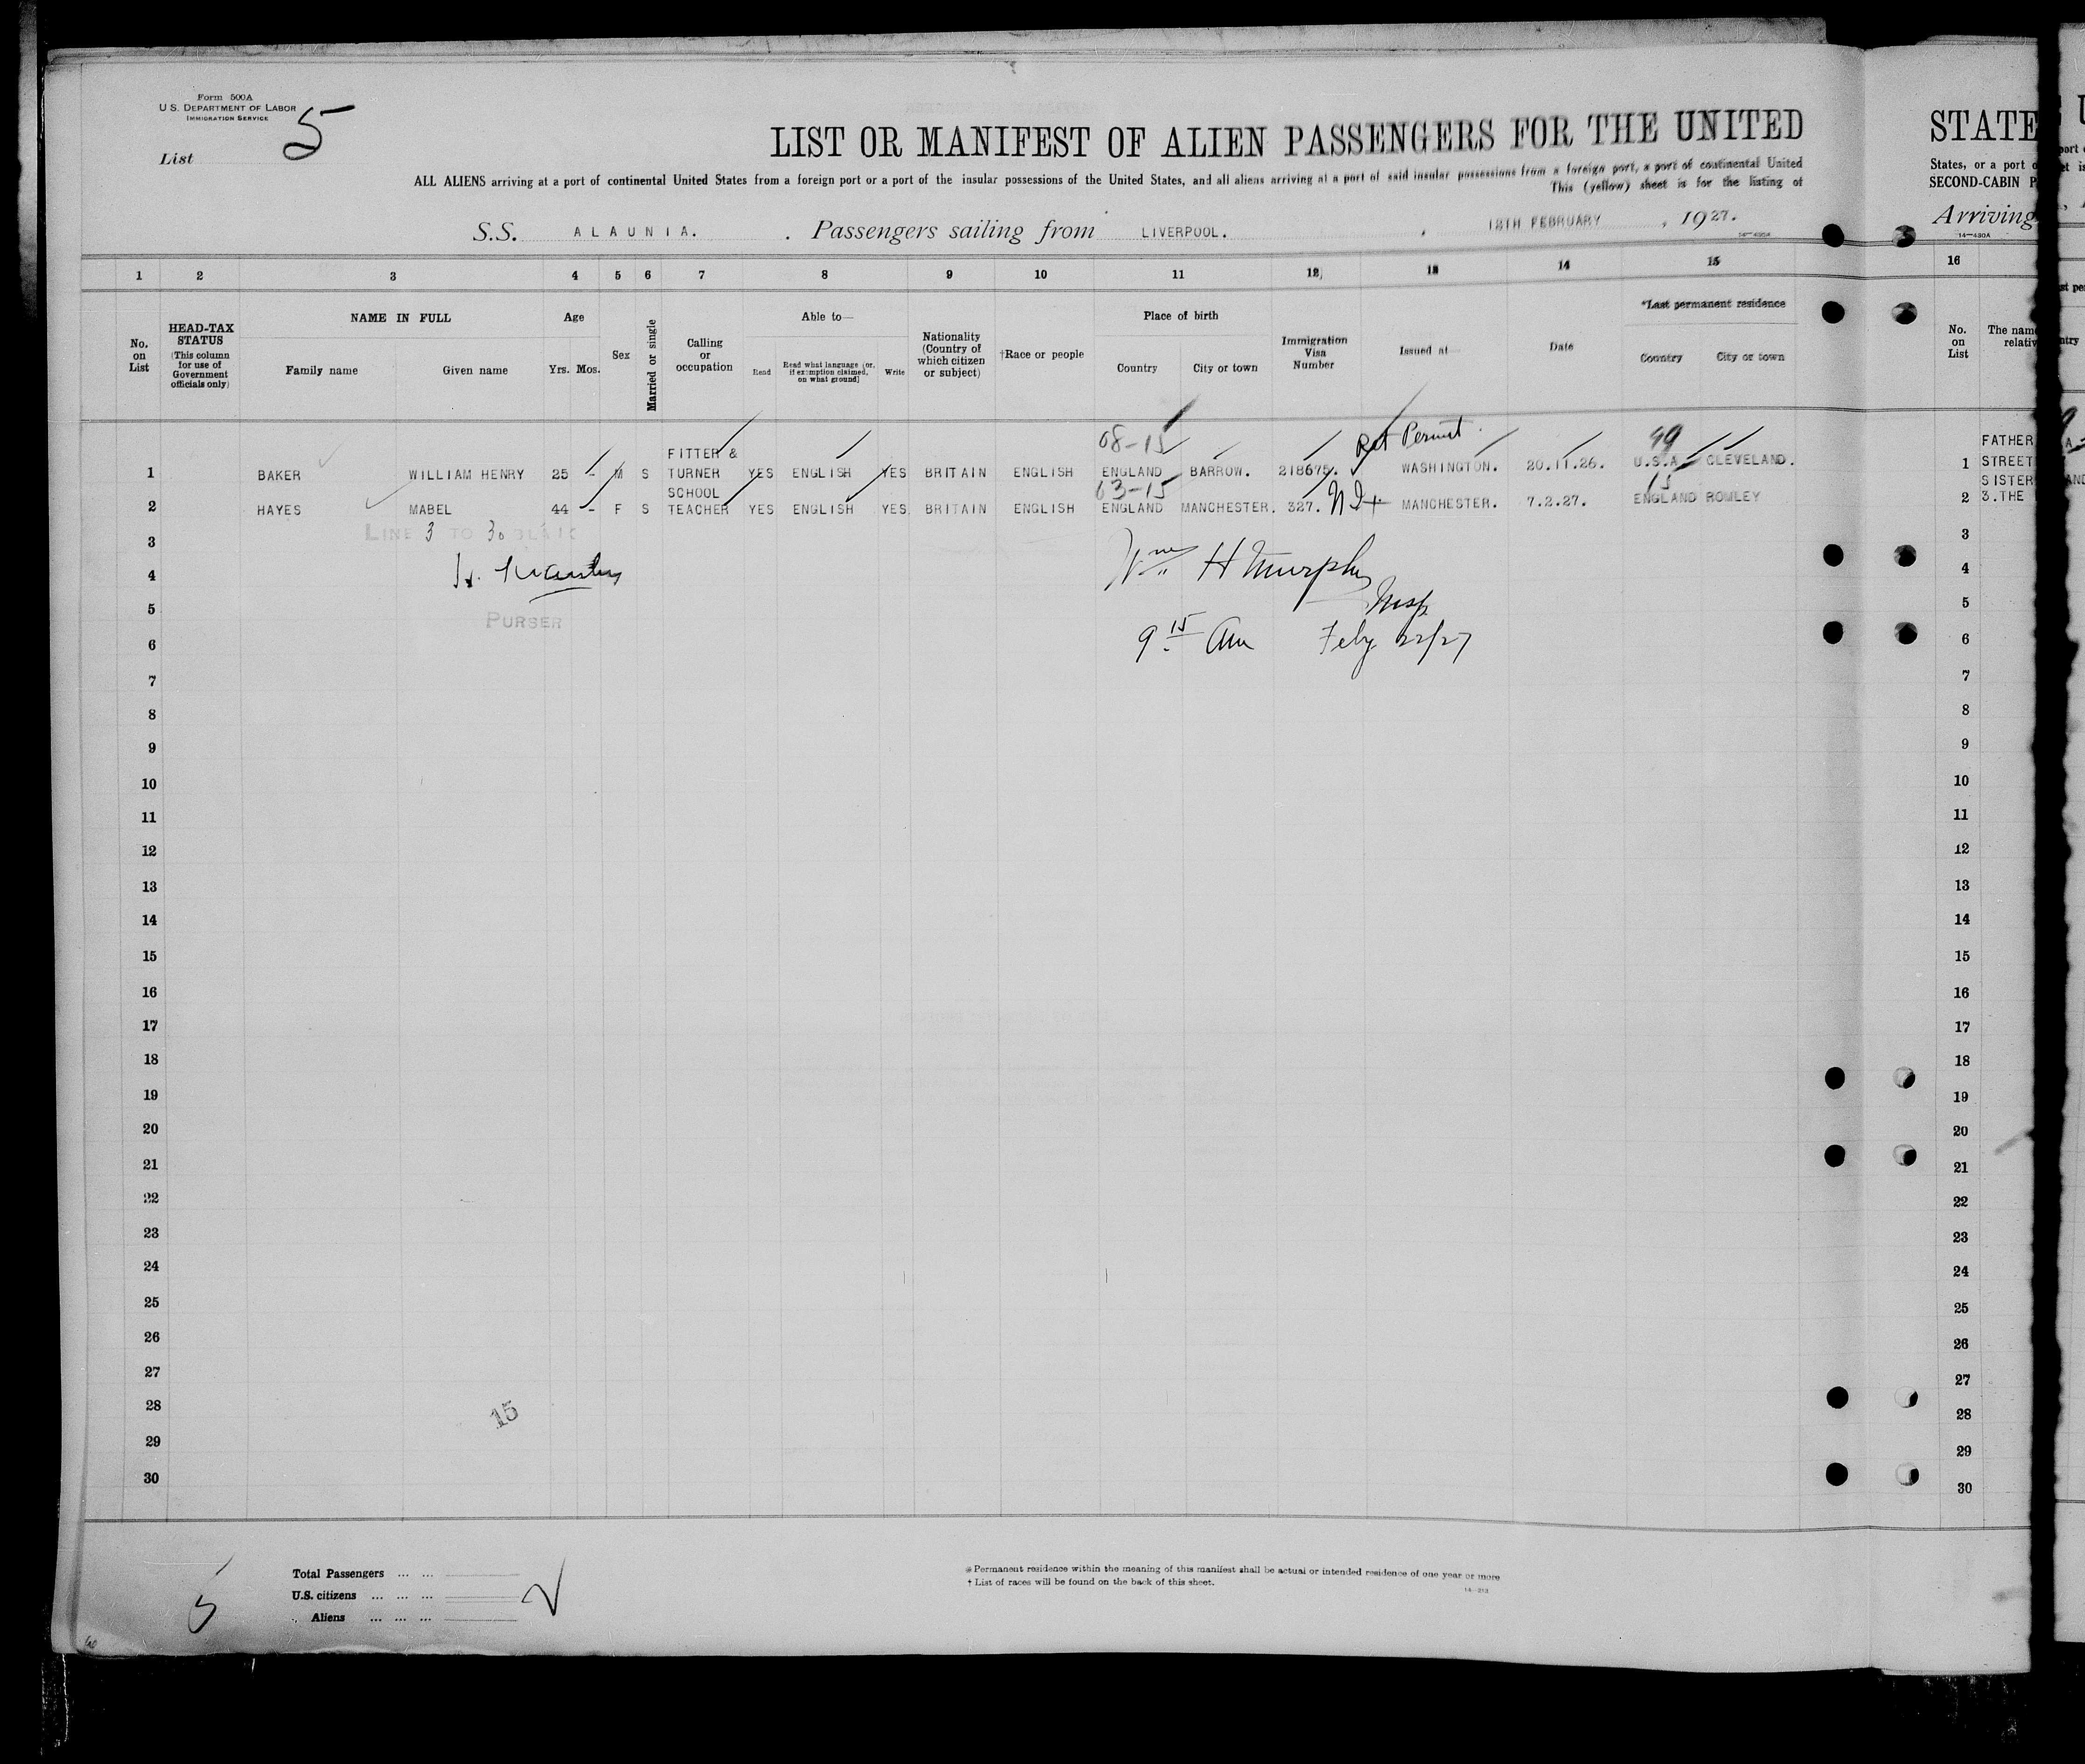 Form 500A
U.S. DEPARTMENT OF LABOR
IMMIGRATION SERVICE
List 5
LIST OR MANIFEST OF ALIEN PASSENGERS FOR THE UNITED
ALL ALIENS arriving at a port of continental United States from a foreign port or a port of the insular possessions of the United States, and all aliens arriving at a port of said insular possessions from a foreign port, a port of continental United
This (yellow) sheet is for the listing of
S.S. ALAUNIA. . Passengers sailing from LIVERPOOL. , 18TH FEBRUARY , 1927.
14—430A
1 2 3 4 5 6 7 8 9 10 11 12 13 14 15
No. on List
HEAD-TAX STATUS
(This column for use of Government officials only)
NAME IN FULL
Family name Given name
Age
Yrs. Mos.
Sex
Married or single
Calling or occupation
Able to—
Read
Read what language (or, if exemption claimed, on what ground)
Write
Nationality (Country of which citizen or subject)
†Race or people
Place of birth
Country City or town
Immigration Visa Number
Issued at—
Date
*Last permanent residence
Country City or town
08-15 Ret Permit 99
1 BAKER WILLIAM HENRY 25 - M S FITTER & TURNER YES ENGLISH YES BRITAIN ENGLISH ENGLAND BARROW. 218675. WASHINGTON. 20.11.26. U.S.A CLEVELAND.
03-15 15
2 HAYES MABEL 44 - F S SCHOOL TEACHER YES ENGLISH YES BRITAIN ENGLISH ENGLAND MANCHESTER. 327. MANCHESTER. 7.2.27. ENGLAND ROMLEY
3 LINE 3 TO 30 BLANK
4 Wm H Murphy
5 PURSER Insp
6 9 15 Am Feby 22/27
7
8
9
10
11
12
13
14
15
16
17
18
19
20
21
22
23
24
25
26
27
28 15
29
30
Total Passengers ... ...
U.S. citizens ... ... ...
Aliens ... ... ...
5
* Permanent residence within the meaning of this manifest shall be actual or intended residence of one year or more
† List of races will be found on the back of this sheet.
STATE
States, or a port
SECOND-CABIN
Arriving
14—430A
16
No. on List
The name
FATHER
1 STREET
SISTER
2 3.THE
3
4
5
6
7
8
9
10
11
12
13
14
15
16
17
18
19
20
21
22
23
24
25
26
27
28
29
30